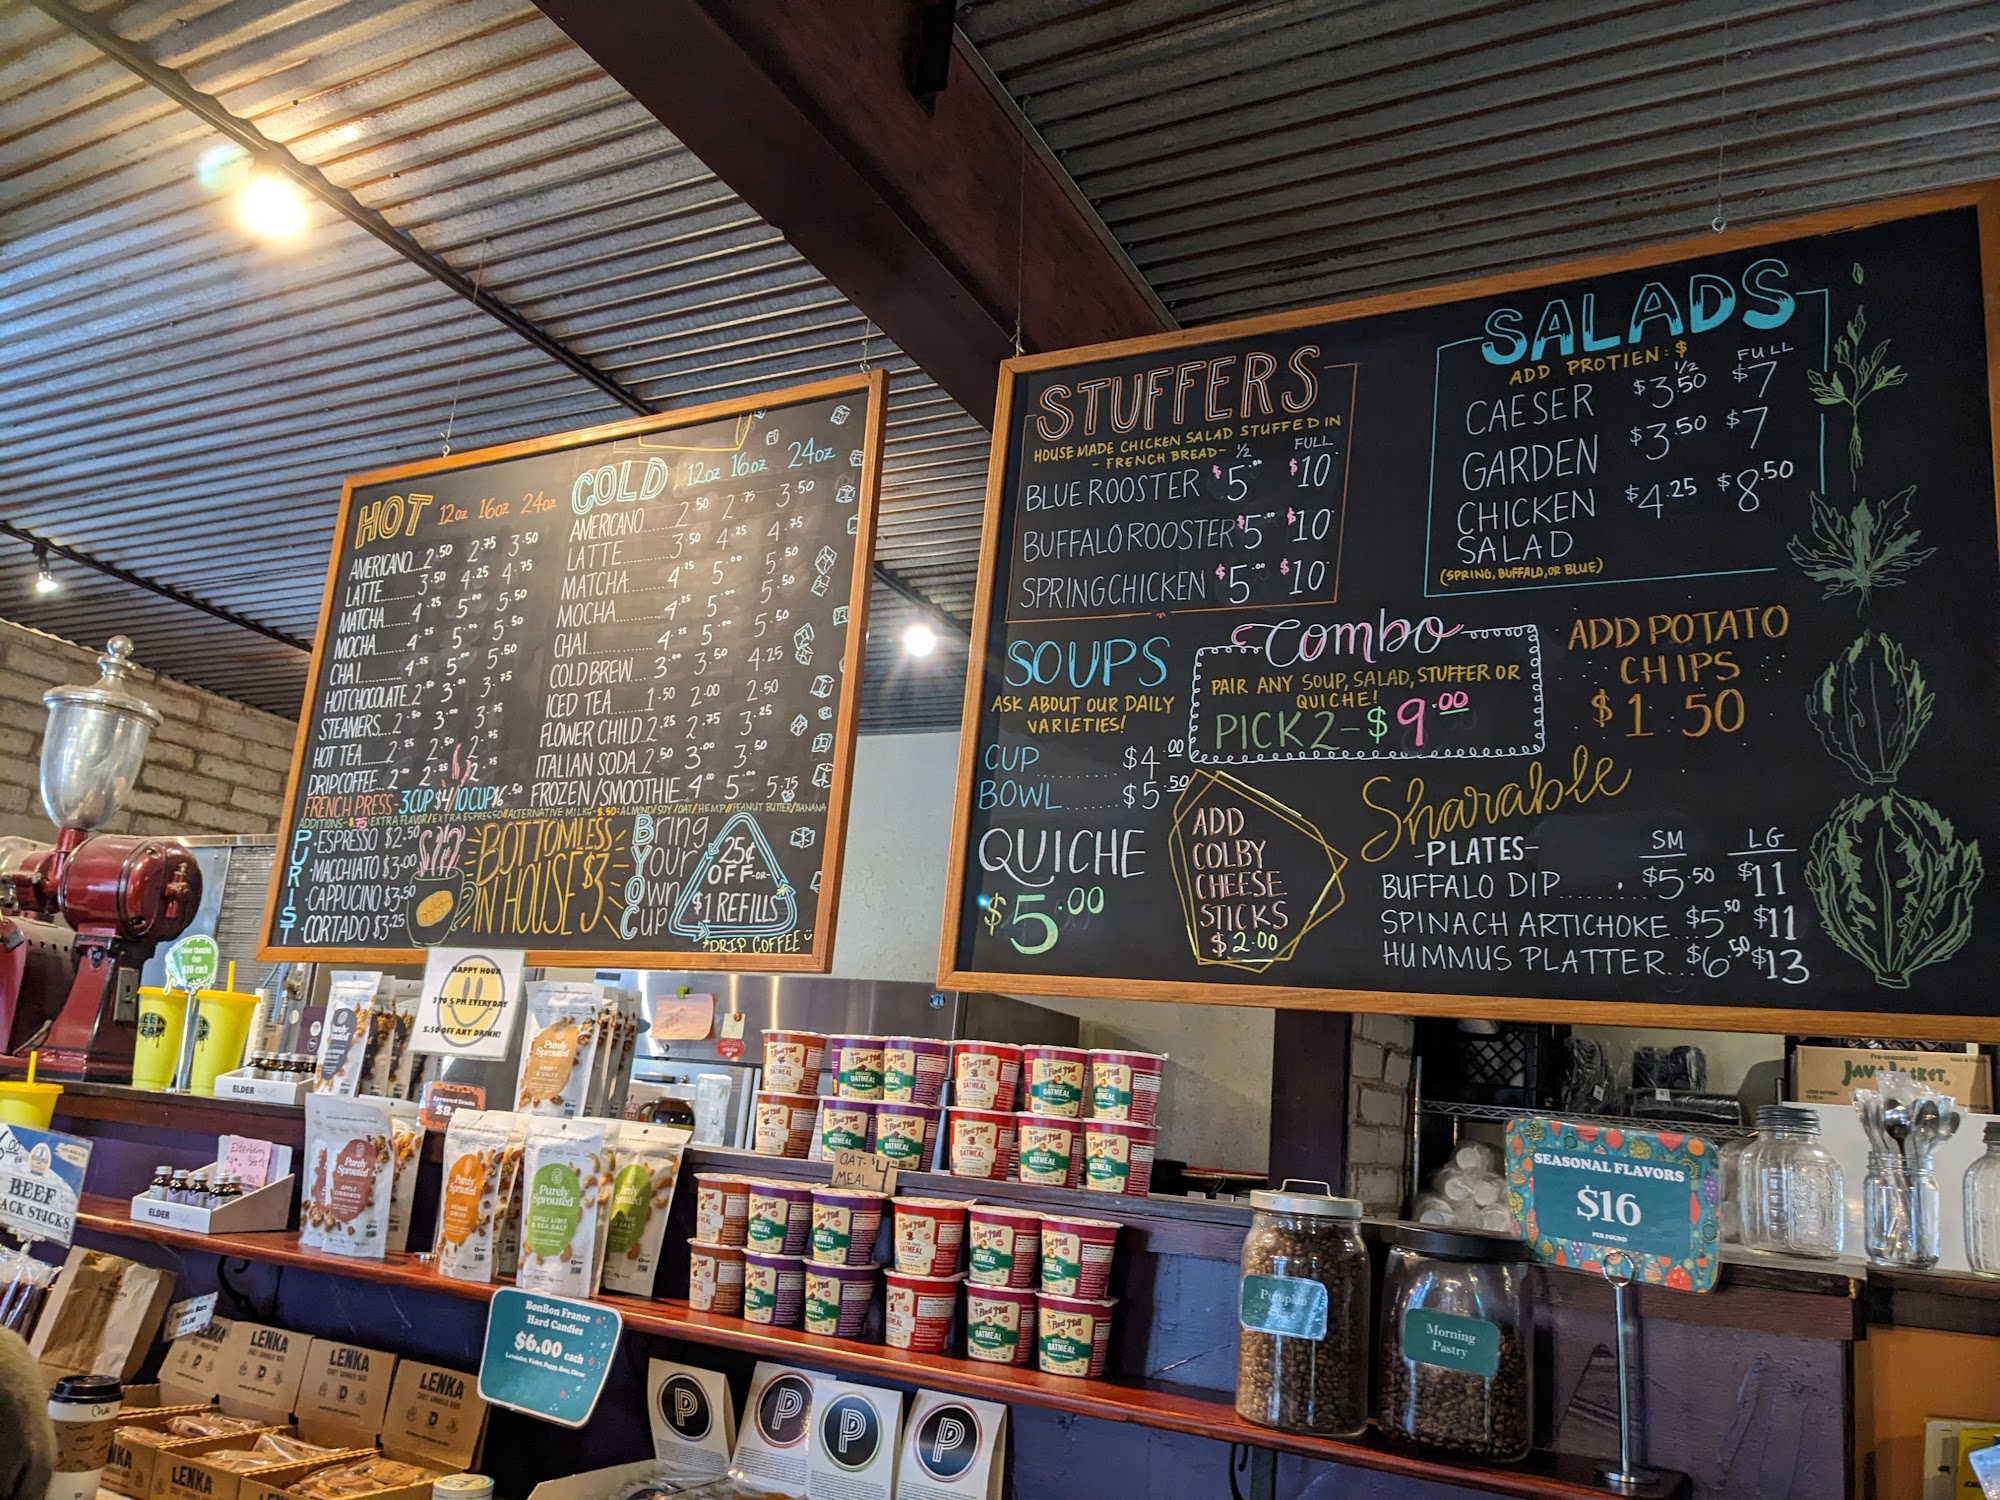 HOT 12oz 16oz 24oz
AMERICANO...2.50 2.75 3.50
LATTE........3.50 4.25 4.75
MATCHA......4.25 5.00 5.50
MOCHA.......4.25 5.00 5.50
CHAI..........4.25 5.00 5.50
HOT CHOCOLATE.2.50 3.00 3.75
STEAMERS...2.50 3.00 3.75
HOT TEA.....2.25 2.50 2.75
DRIP COFFEE..2.00 2.25 2.75
FRENCH PRESS-3 CUP $4/10 CUP $6.50
ADDITIONS-$.75-EXTRA FLAVOR/EXTRA ESPRESSO//ALTERNATIVE MILKS-$.50:ALMOND/SOY/OAT/HEMP//PEANUT BUTTER/BANANA
PURIST
·ESPRESSO $2.50
·MACCHIATO $3.00
·CAPPUCINO $3.50
·CORTADO $3.25
COLD 12oz 16oz 24oz
AMERICANO.......2.50 2.75 3.50
LATTE..........3.50 4.25 4.75
MATCHA........4.25 5.00 5.50
MOCHA.........4.25 5.00 5.50
CHAI...........4.25 5.00 5.50
COLD BREW...3.00 3.50 4.25
ICED TEA.....1.50 2.00 2.50
FLOWER CHILD.2.25 2.75 3.25
ITALIAN SODA.2.50 3.00 3.50
FROZEN/SMOOTHIE.4.00 5.00 5.75
BOTTOMLESS
IN HOUSE $3
Bring
Your
Own
Cup
25¢
OFF -OR-
$1 REFILLS
*DRIP COFFEE
STUFFERS
HOUSE MADE CHICKEN SALAD STUFFED IN
- FRENCH BREAD- 1/2 FULL
BLUE ROOSTER $5.00 $10
BUFFALO ROOSTER $5.00 $10
SPRING CHICKEN $5.00 $10
SALADS
ADD PROTIEN: $
1/2 FULL
CAESER $3.50 $7
GARDEN $3.50 $7
CHICKEN $4.25 $8.50
SALAD
(SPRING, BUFFALO, OR BLUE)
SOUPS
ASK ABOUT OUR DAILY
VARIETIES!
CUP........$4.00
BOWL.......$5.50
Combo
PAIR ANY SOUP, SALAD, STUFFER OR
QUICHE!
PICK 2-$9.00
ADD POTATO
CHIPS
$1.50
QUICHE
$5.00
ADD
COLBY
CHEESE
STICKS
$2.00
Sharable
-PLATES- SM LG
BUFFALO DIP........$5.50 $11
SPINACH ARTICHOKE..$5.50 $11
HUMMUS PLATTER...$6.50 $13
HAPPY HOUR
3 TO 5 PM EVERYDAY
$.50 OFF ANY DRINK!
$10 each
ELDER
Purely
Sprouted
SWEET &
SALTY
Sprouted Snacks
Elderberry
Shots
ELDER
BEEF
STICKS
Purely
Sprouted
APPLE
CINNAMON
Purely
Sprouted
Purely
Sprouted
CHILI LIME &
SEA SALT
Red Mill
OATMEAL
OAT- $4
MEAL
BonBon France
Hard Candies
$6.00 each
LENKA
LENKA
LENKA
LENKA
P
P
P
P
Pumpkin
Spice
Morning
Pastry
SEASONAL FLAVORS
$16
PER POUND
JAVA JACKET